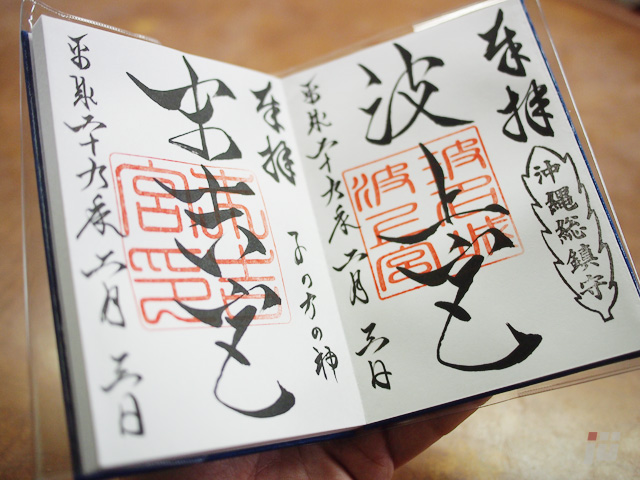 奉拝
沖縄総鎮守
波上宮
平成二十九年二月三日
奉拝
子の方の神
末吉宮
末吉宮印
平成二十九年二月三日